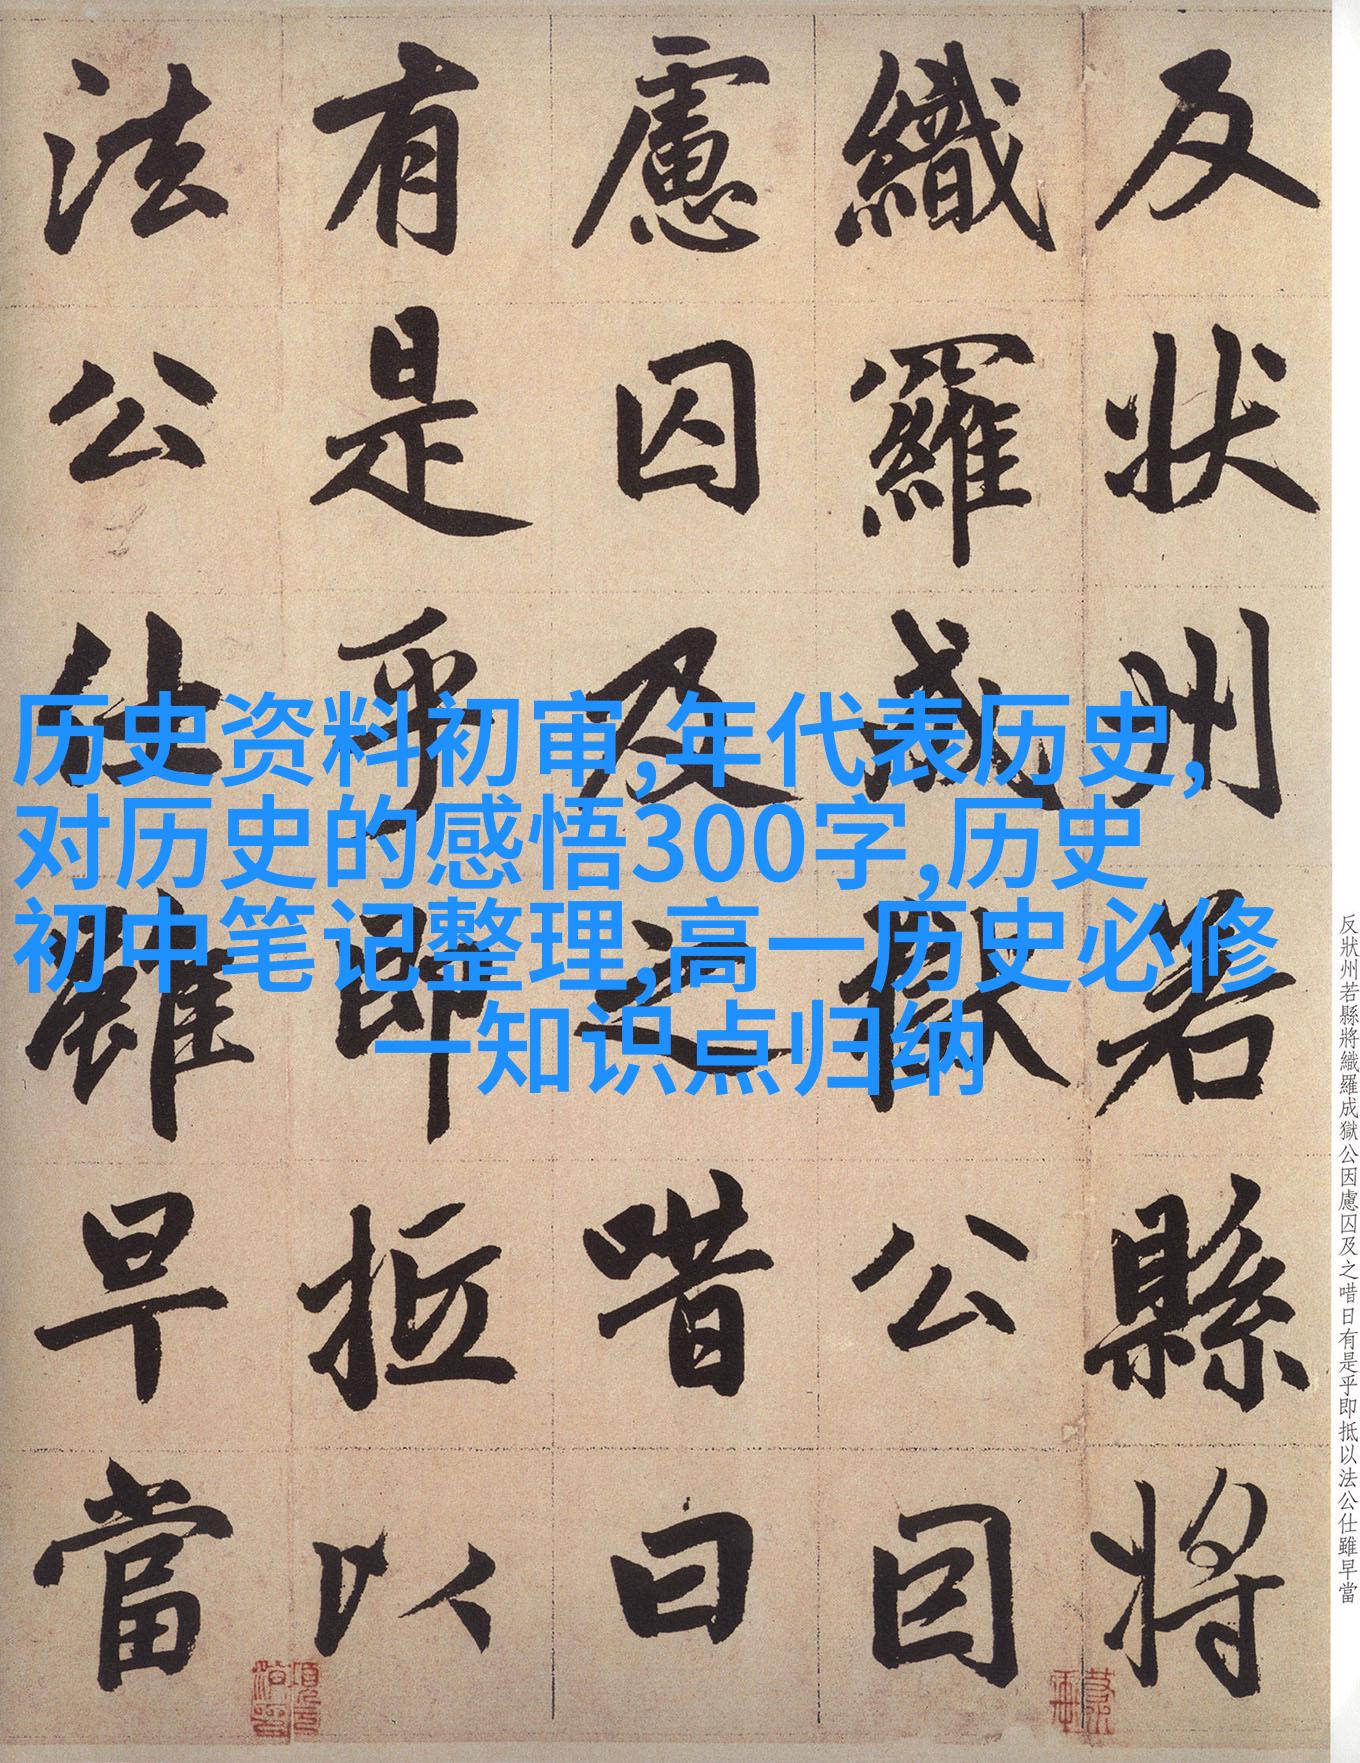 反状州若縣將
織羅成獄公因
慮囚及之唶曰
有是乎即抵以
法公仕雖早當
历史资料初审,年代表历史,
对历史的感悟300字,历史
初中笔记整理,高一历史必修
一知识点归纳
反狀州若縣將織羅成獄公因慮囚及之唶日有是乎即抵以法公仕雖早當